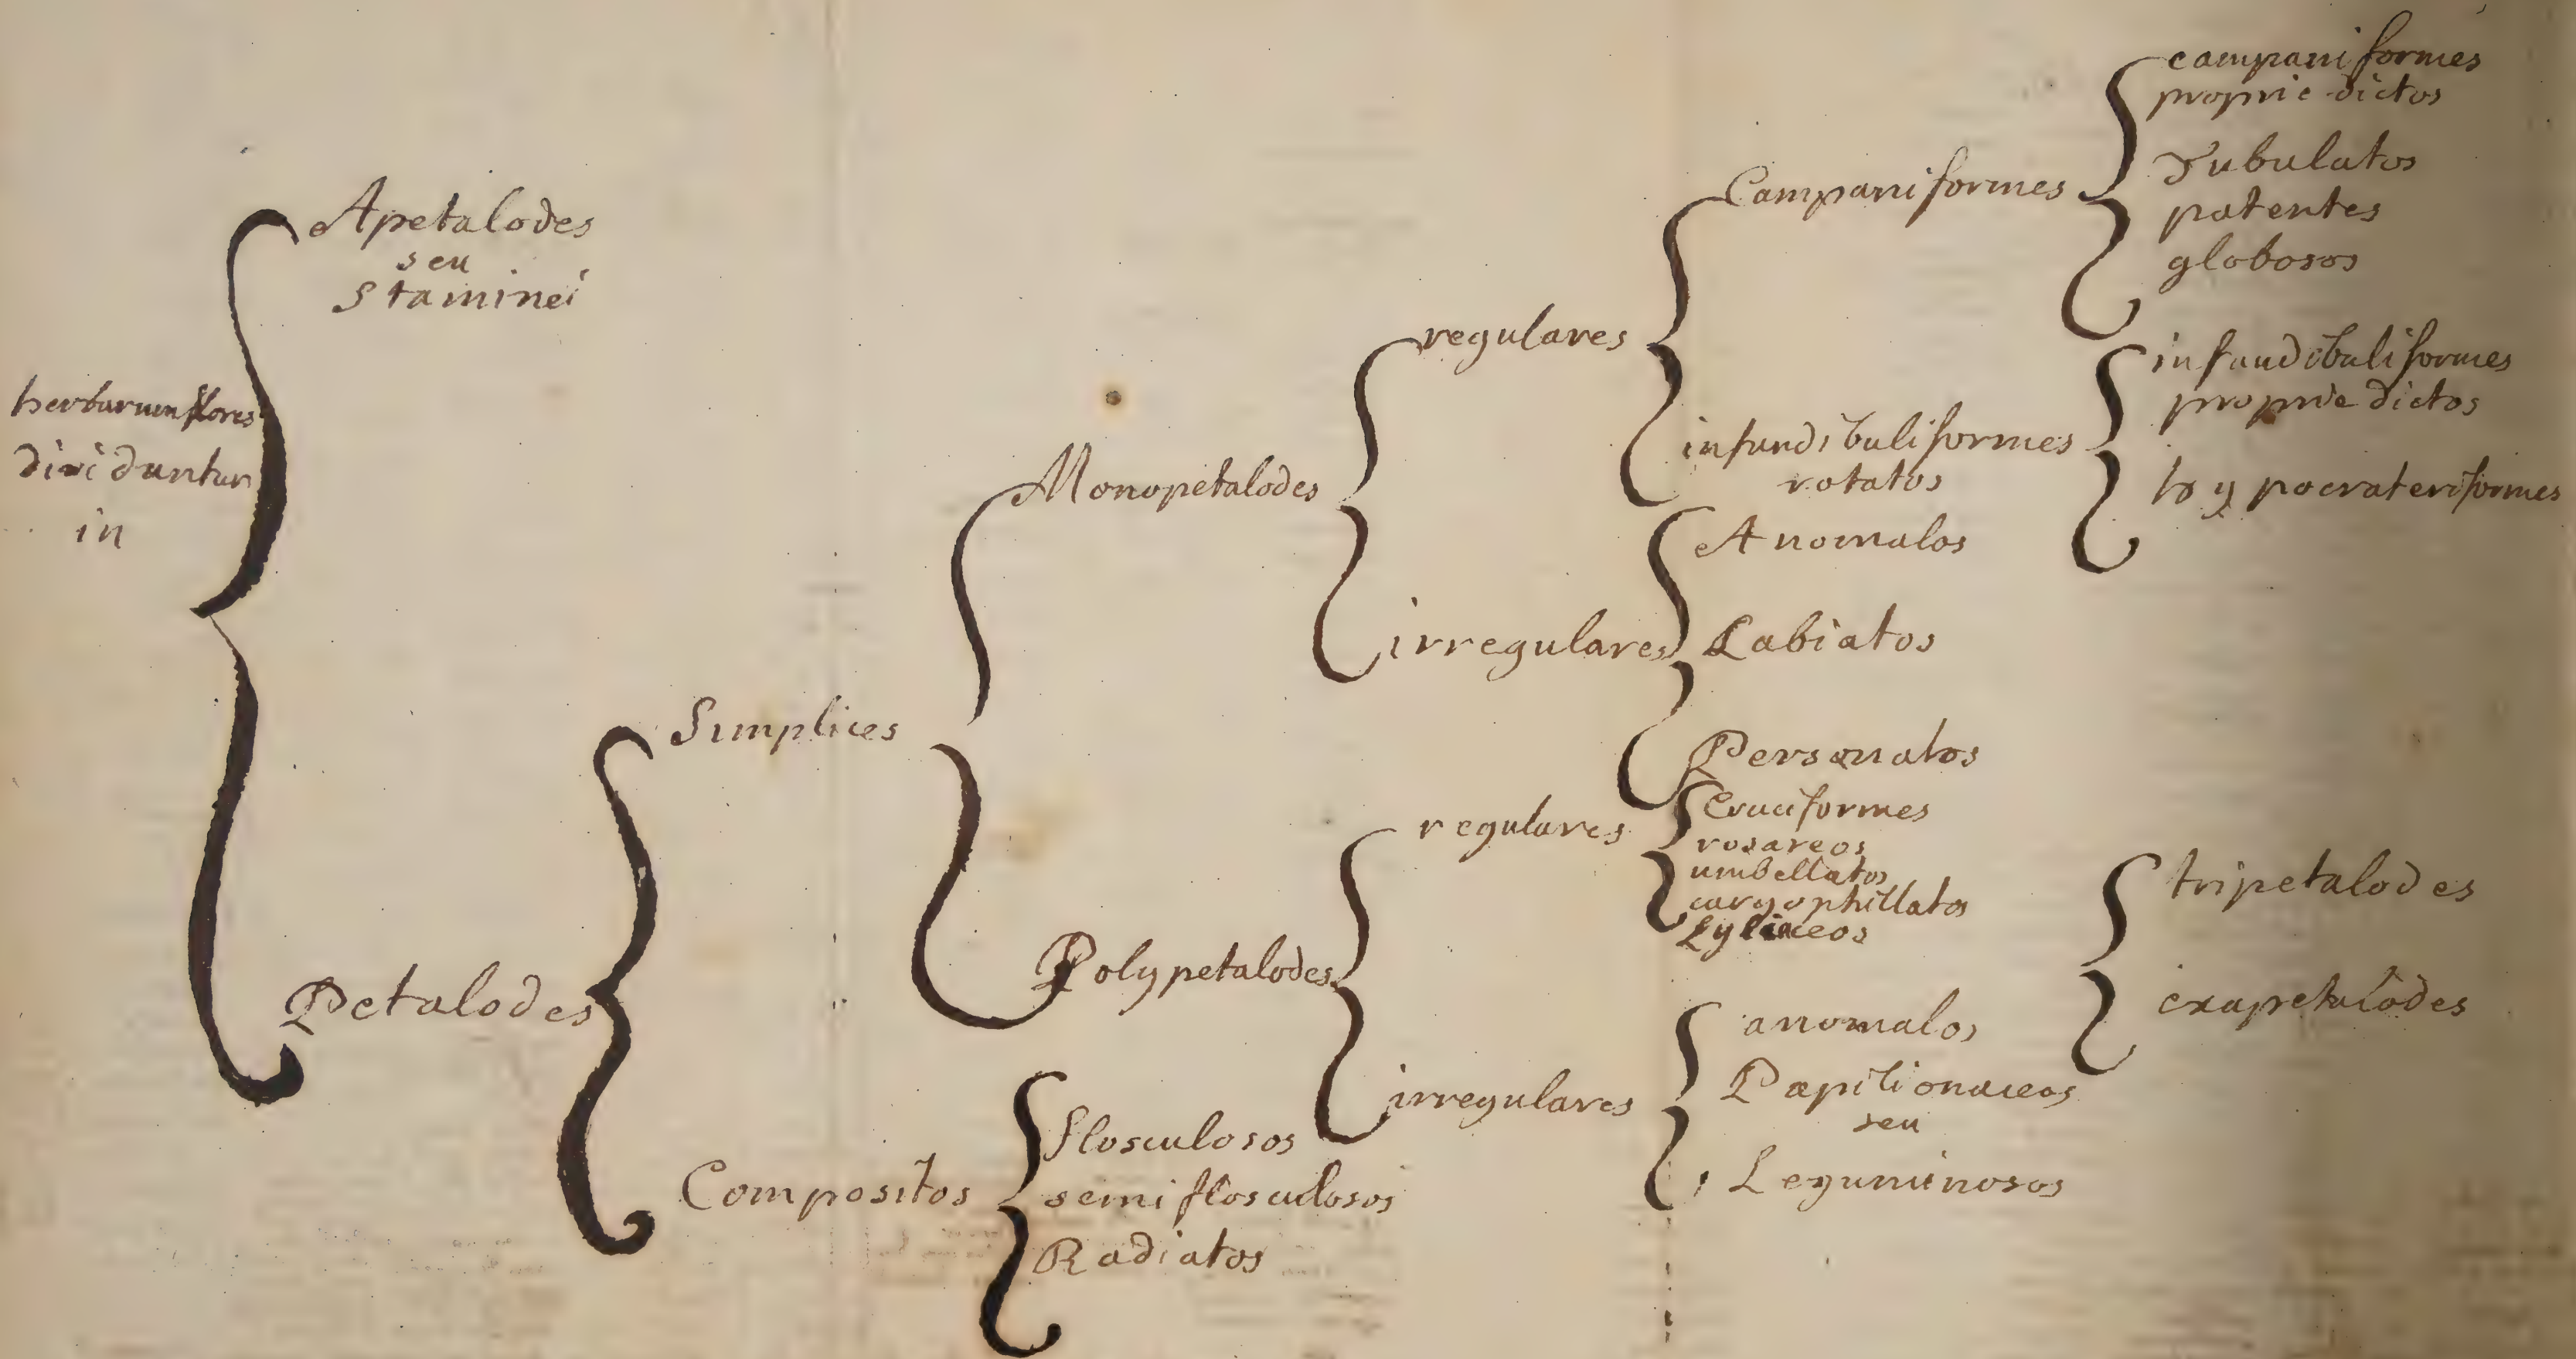 herbarum flores
dividuntur
in
Apetalodes
seu
Staminei
Petalodes
Simplices
Compositos
Monopetalodes
Polypetalodes
flosculosos
semiflosculosos
Radiatos
regulares
irregulares
regulares
irregulares
Campaniformes
infundibuliformes
rotatos
Anomalos
Labiatos
Personatos
Cruciformes
rosareos
umbellatos
caryophillatos
Lyliaceos
anomalos
Papilionaceos
seu
Leguminosos
campaniformes
proprie dictos
Tubulatos
patentes
globosos
infundibuliformes
proprie dictos
hypocrateriformes
tripetalodes
exapetalodes